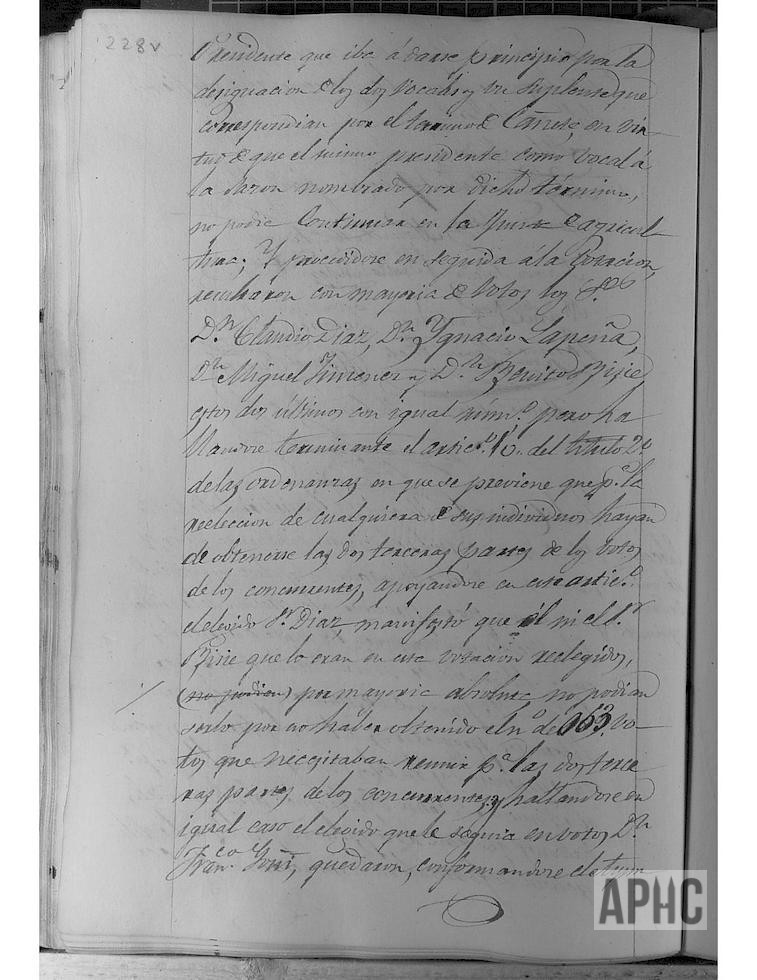 228v
Presidente que iba á darse principio por la
designacion de los dos vocales y un suplente que
correspondian por el termino de Cañete, en vir-
tud de que el mismo presidente como vocal á
la sazon nombrado por dicho término,
no podia Continuar en la Junta de agricul-
tura; Y procediose en seguida á la Votacion,
resultaron con mayoria de Votos los S.res
D.n Claudio Diaz, D.n Ygnacio Lapeña,
D.n Miguel Jimenez y D.n Benito Bisie
estos dos últimos con igual núm.o pero ha
llandose terminante el artic.o 10. del titulo 2.o
de las ordenanzas en que se previene que p.a la
reeleccion de cualquiera de sus individuos hayan
de obtenerse las dos terceras partes de los votos
de los concurrentes, apoyandose en este artic.o
el elegido S.r Diaz, manifestó que él ni el S.r
Bisie que lo eran en esta votacion reelegidos,
(no podian) por mayoria absoluta, no podian
serlo por no haber obtenido el n.o de 163 vo-
tos que necesitaban reunir p.a las dos terce
ras partes de los concurrentes, y hallandose en
igual caso el elegido que le seguia en votos D.n
Fran.co quedaron, conformandose el
APHC